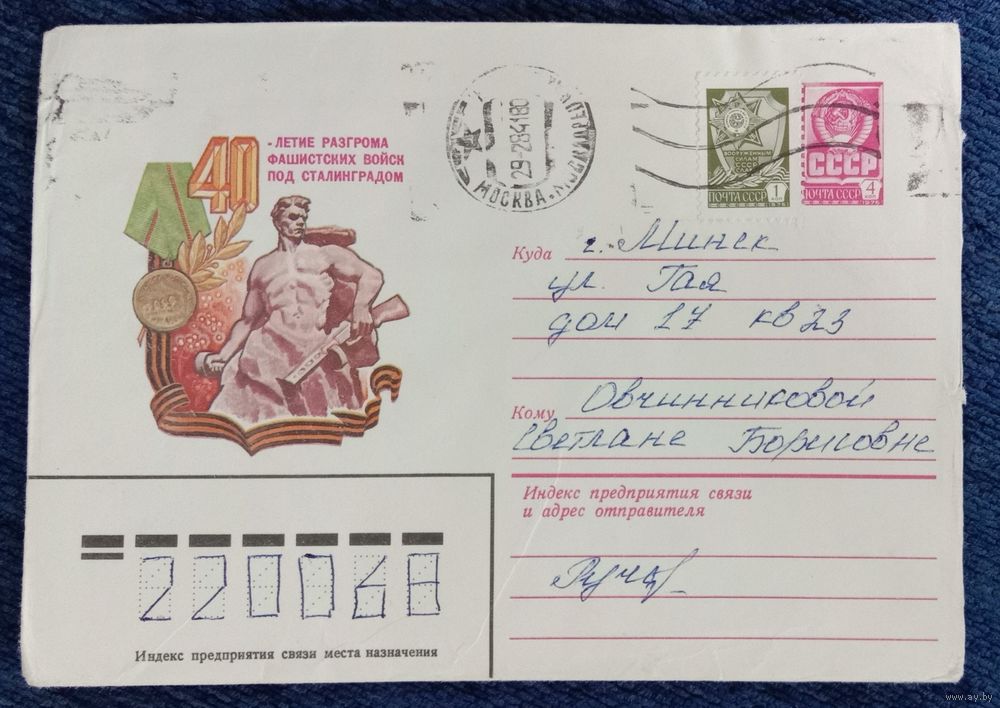 40
-ЛЕТИЕ РАЗГРОМА
ФАШИСТСКИХ ВОЙСК
ПОД СТАЛИНГРАДОМ
МОСКВА
29-2884180
ВООРУЖЕННЫМ
СИЛАМ
СССР
ПОЧТА СССР
1
КОП
1976
СССР
ПОЧТА СССР
4
КОП
1976
Куда г. Минск
ул. Гая
дом 17 кв 23
Кому Овчинниковой
Светлане Борисовне
Индекс предприятия связи
и адрес отправителя
220068
Индекс предприятия связи места назначения
www.ay.by